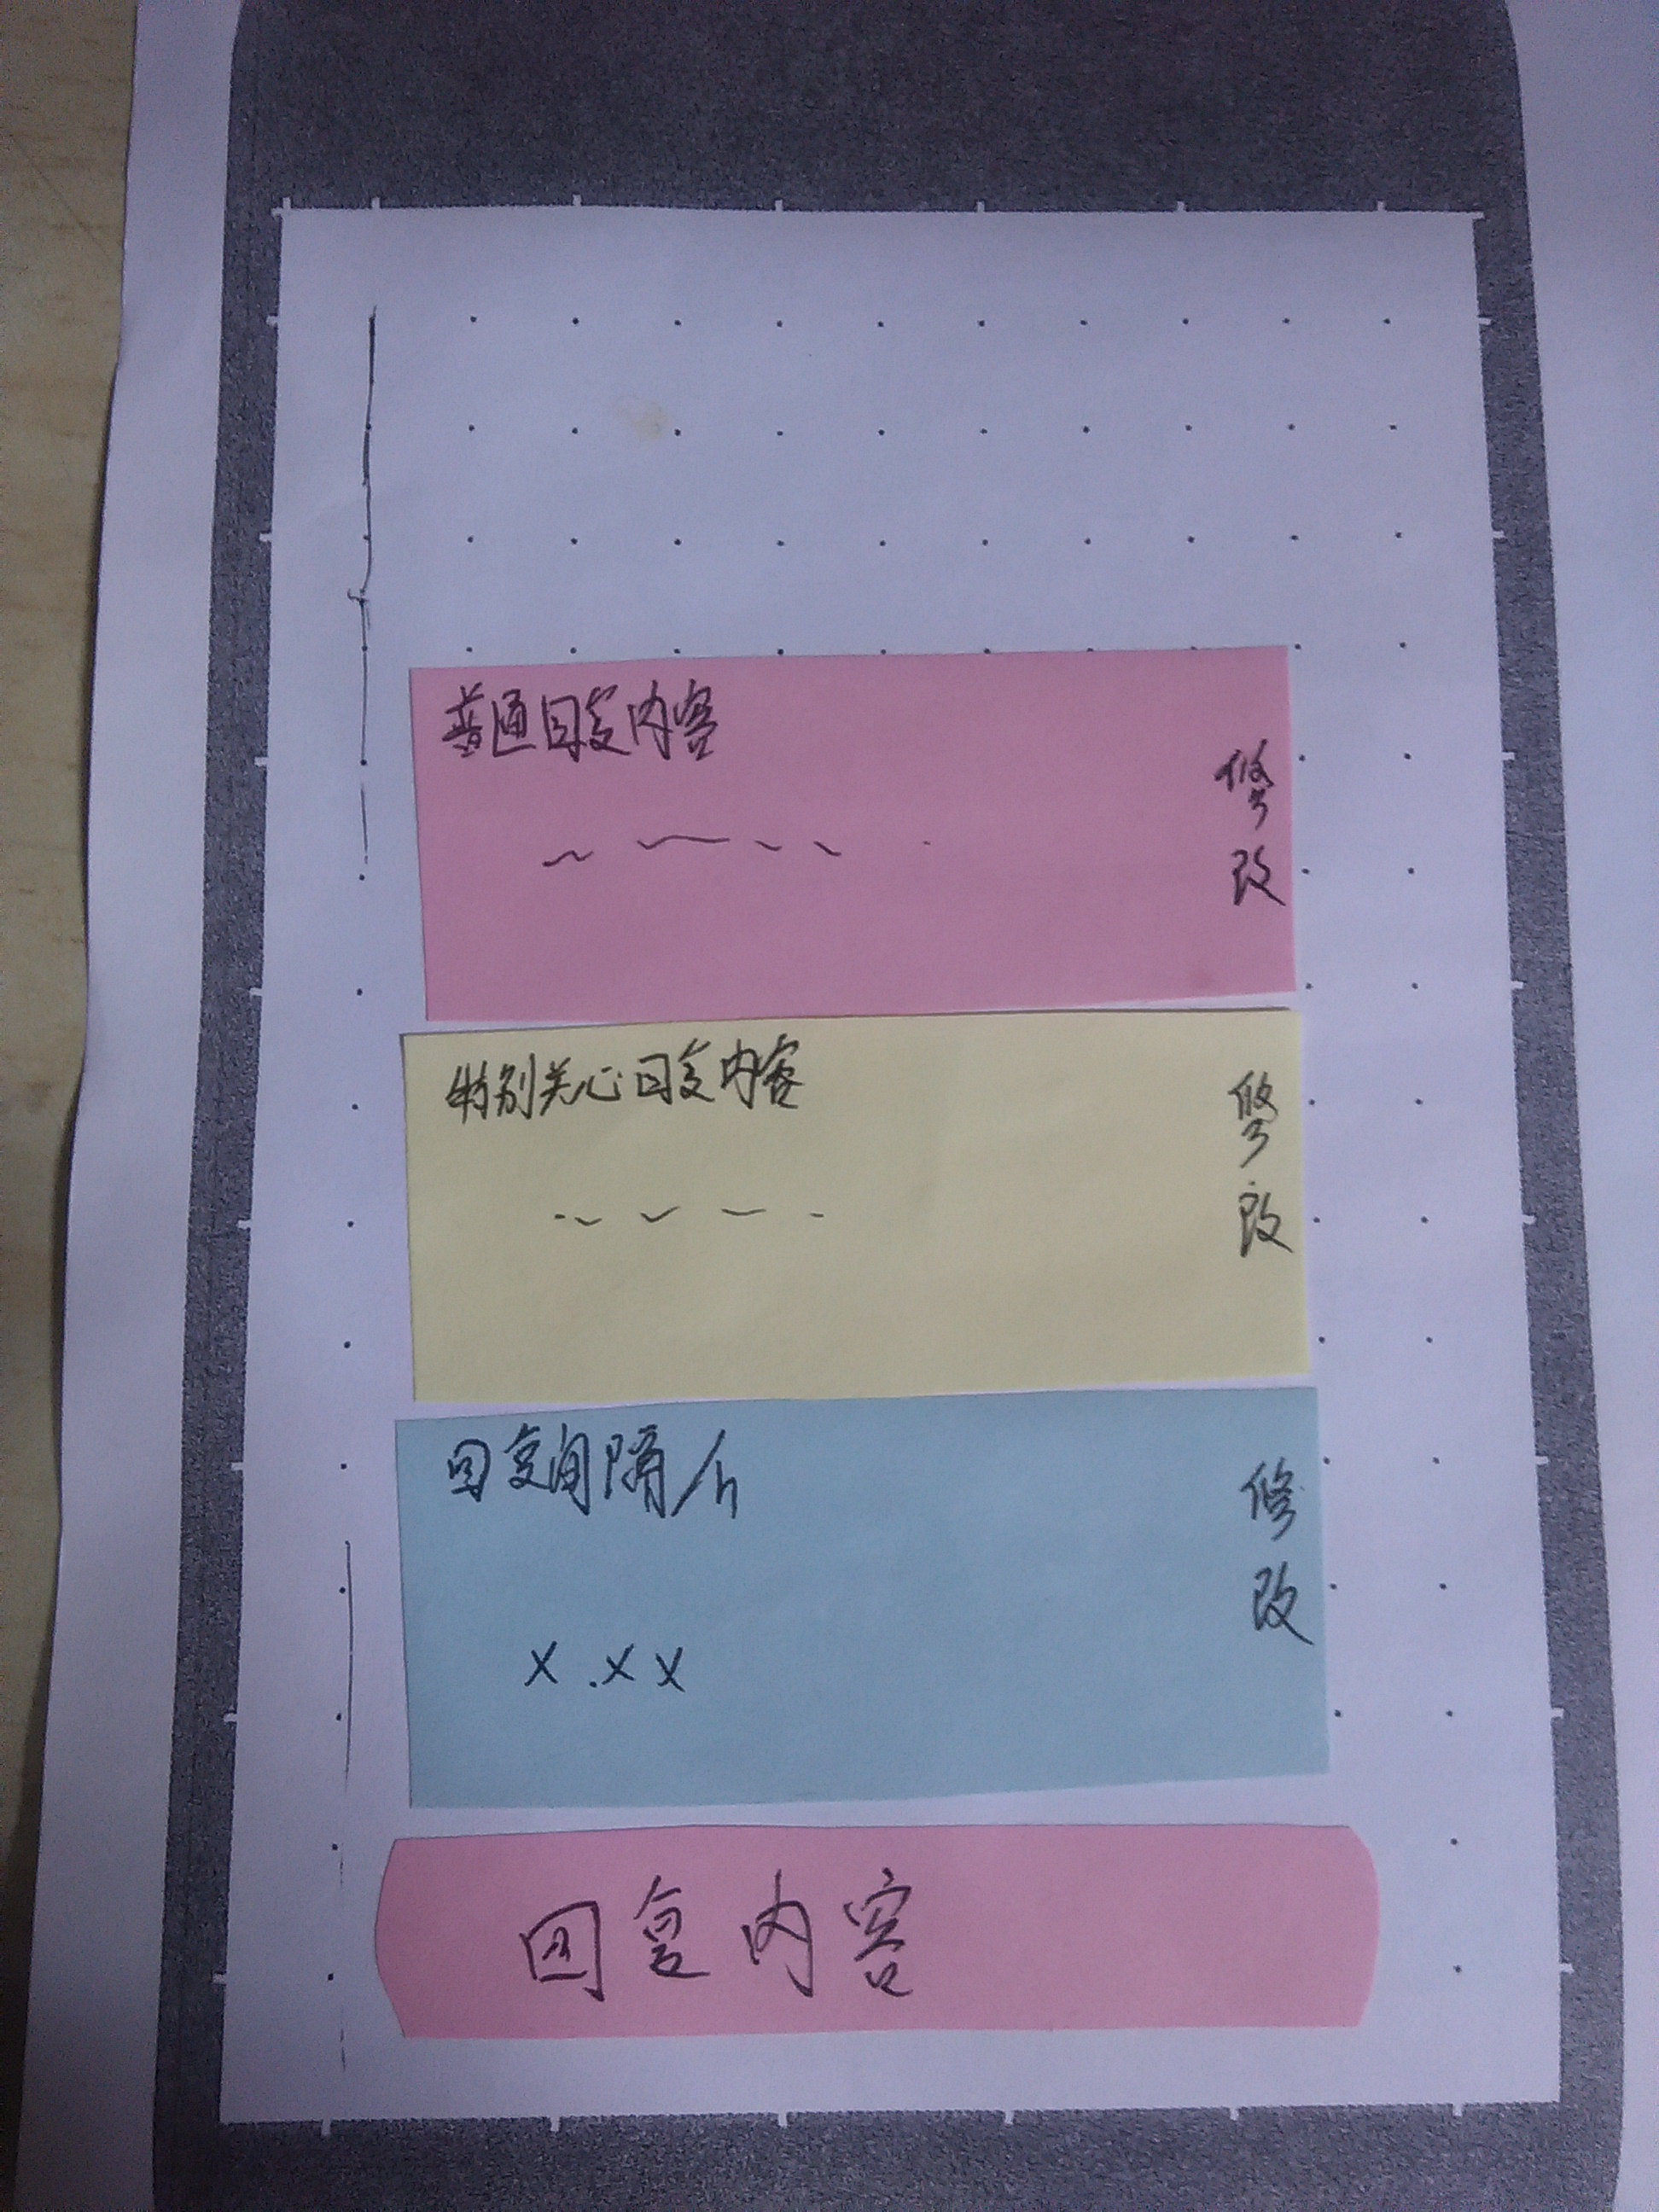 普通回复内容
修改
特别关心回复内容
修改
回复间隔/h
修改
x.xx
回复内容